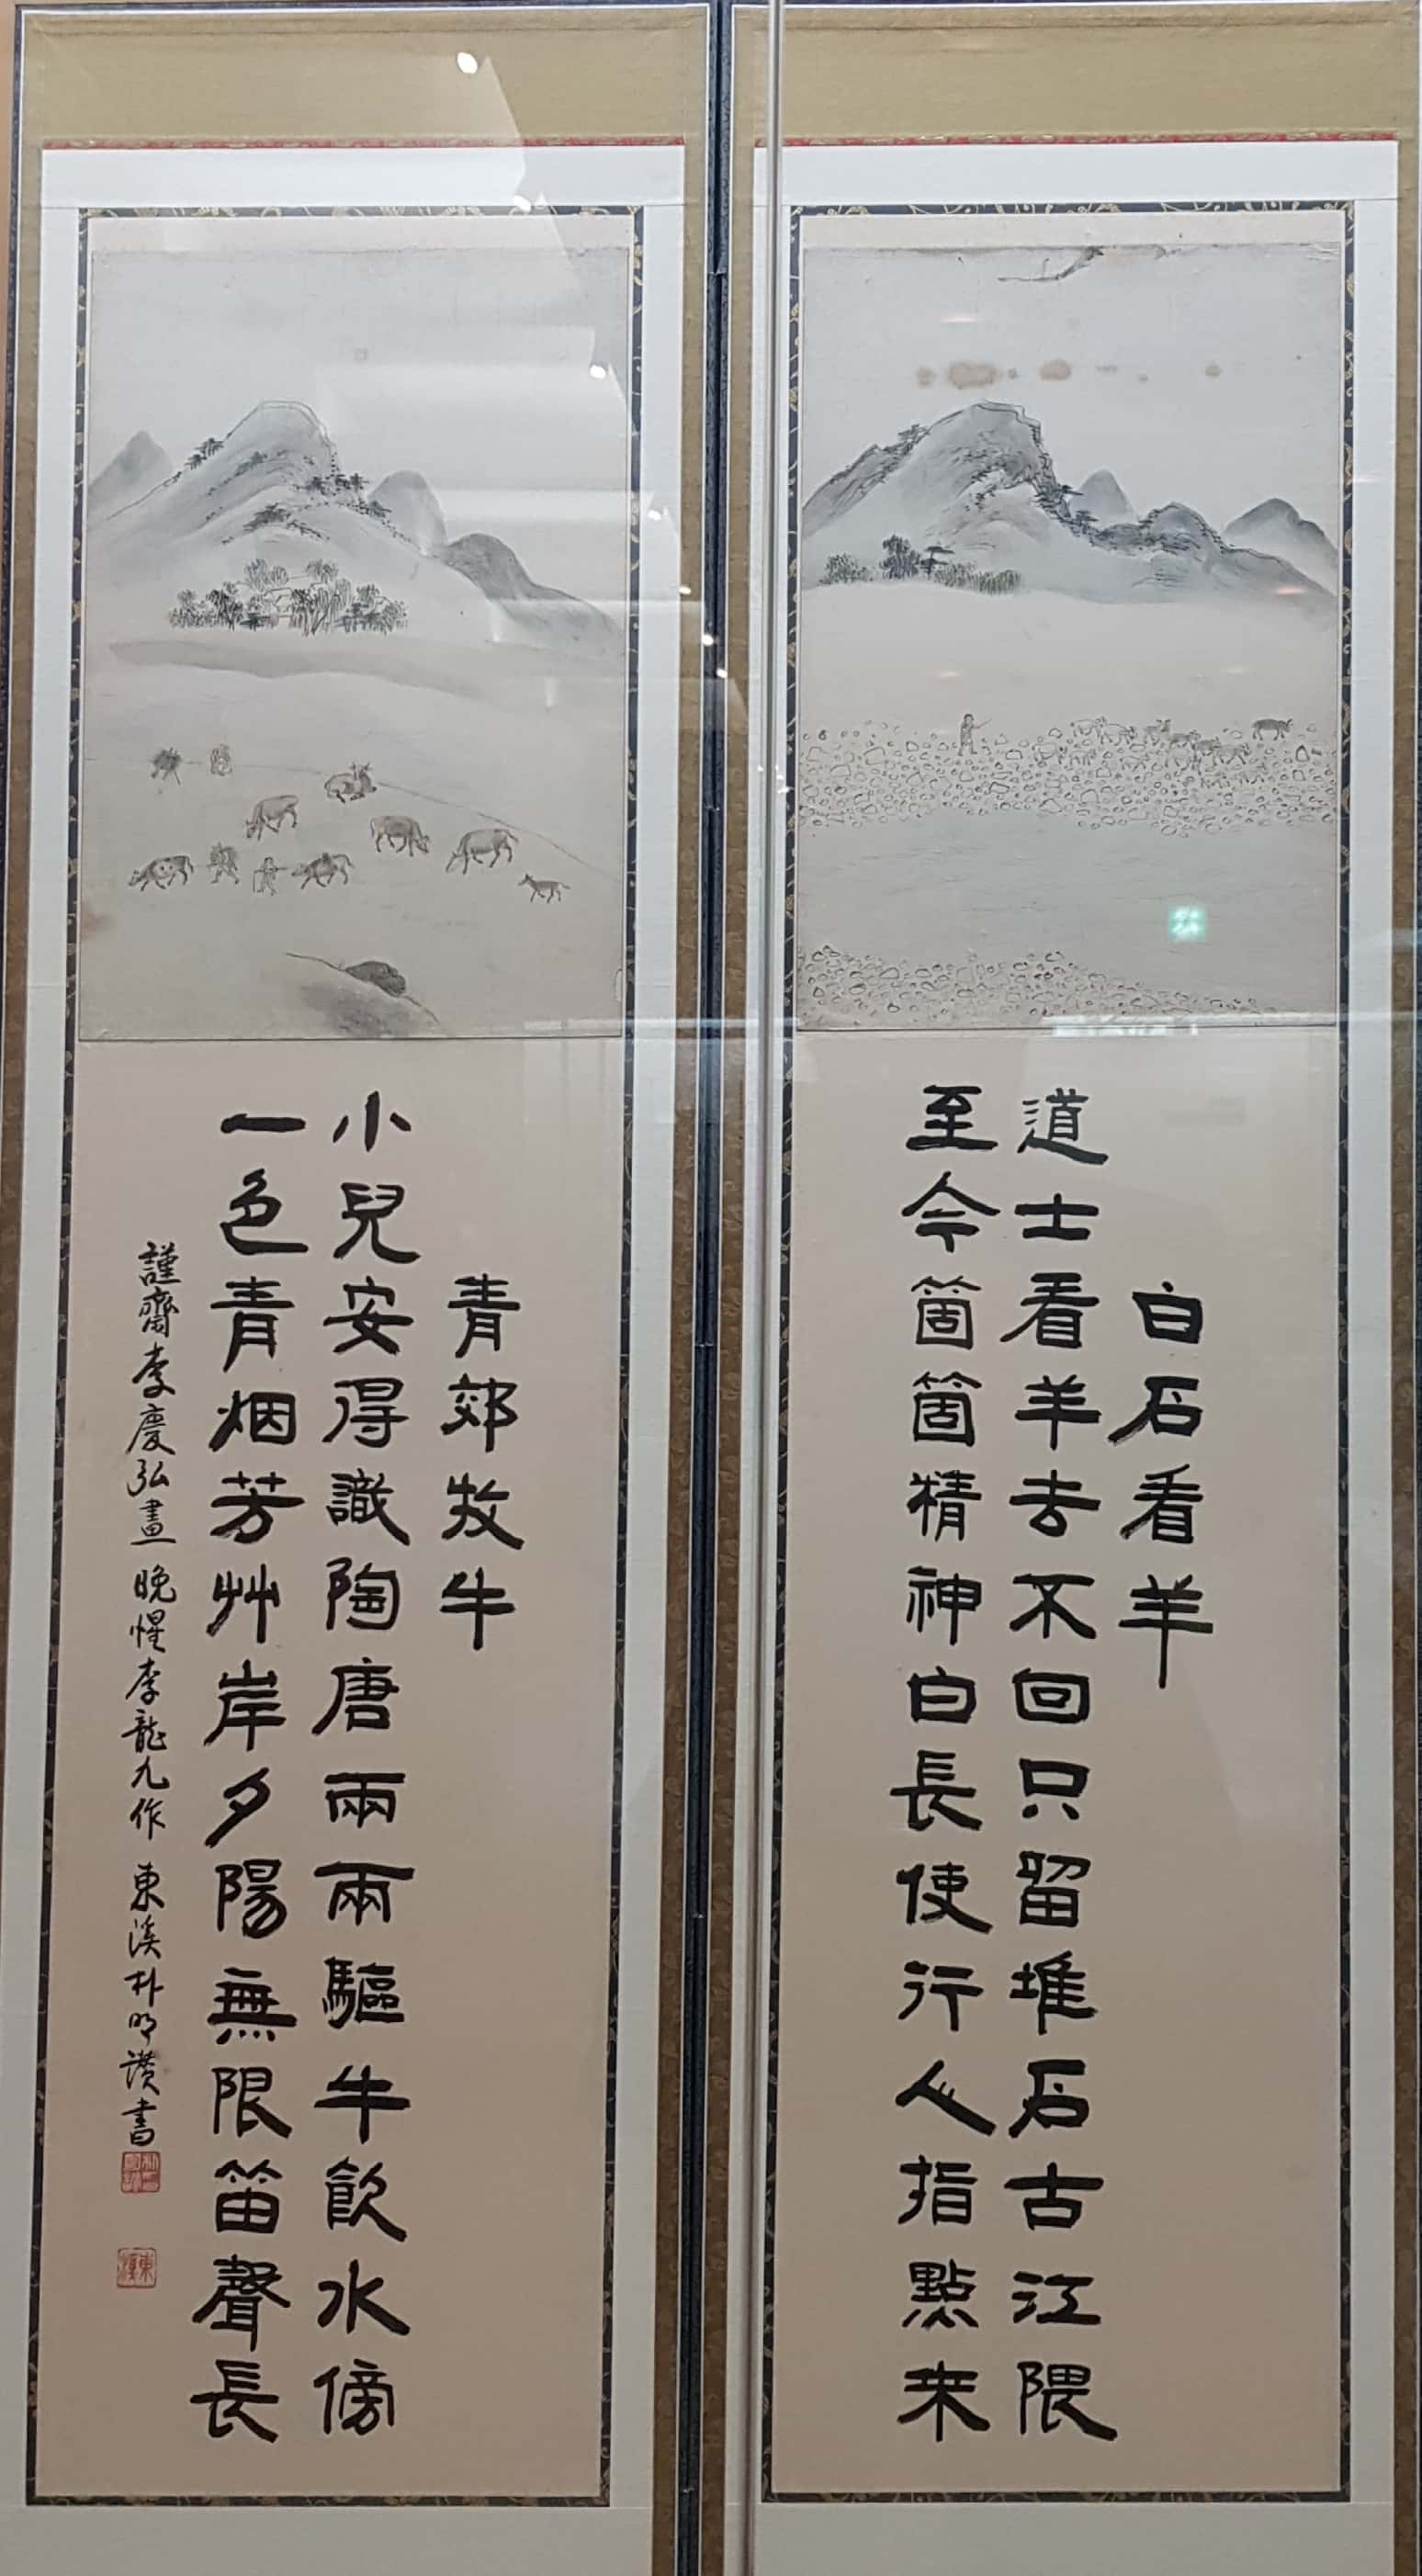 白石看羊
道士看羊去不回只留堆石古江隈
至今箇箇精神白長使行人指點来
青郊牧牛
小兒安得識陶唐兩兩驅牛飮水傍
一色青烟芳艸岸夕陽無限笛聲長
謹齋李慶弘畫 晚惺李龍九作 東溪朴明讚書